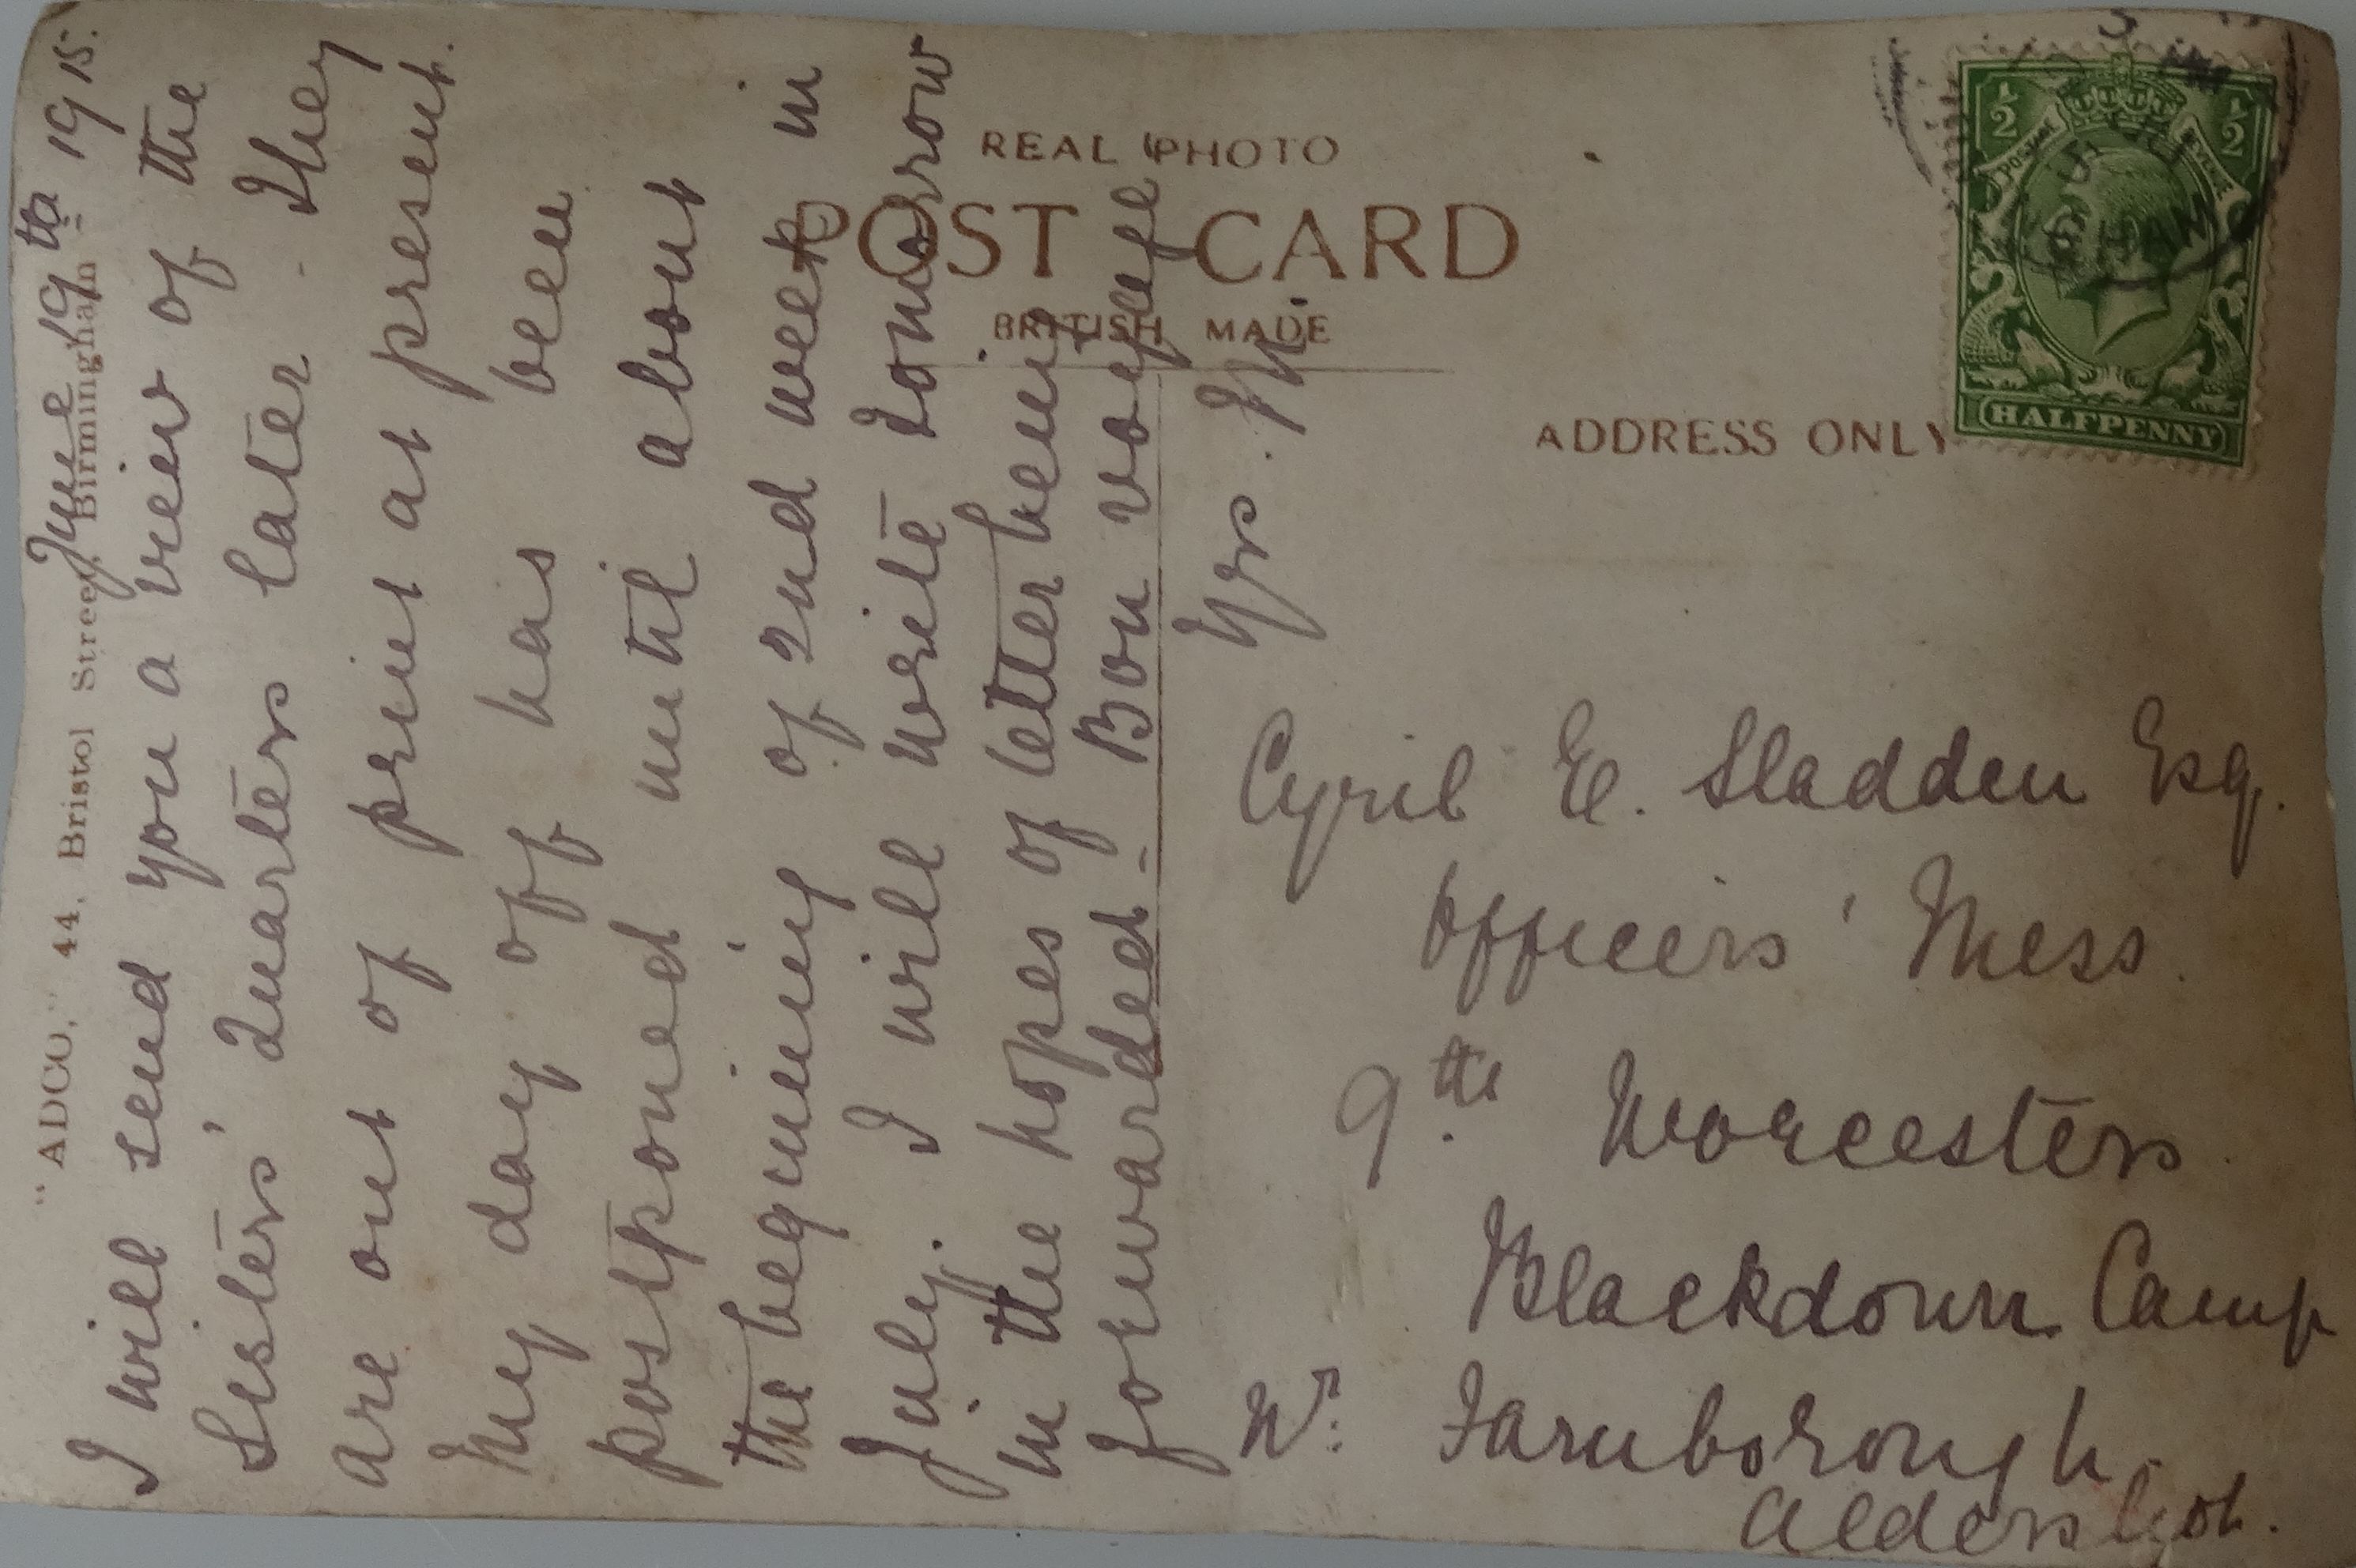 "ADCO," 44, Bristol Street, Birmingham
June 19th 1915.
I will send you a view of the
Sisters' Quarters later - They
are out of print at present.
My day off has been
postponed until about
the beginning of 2nd week in
July. I will write tomorrow
in the hopes of letter being
forwarded - Bon voyage
Yrs. M
REAL PHOTO
POST CARD
BRITISH MADE
ADDRESS ONLY
1/2 1/2
POSTAGE REVENUE
HALFPENNY
Cyril E. Sladden Esq.
Officers' Mess.
9th Worcesters
Blackdown Camp
Nr. Farnborough.
Aldershot.